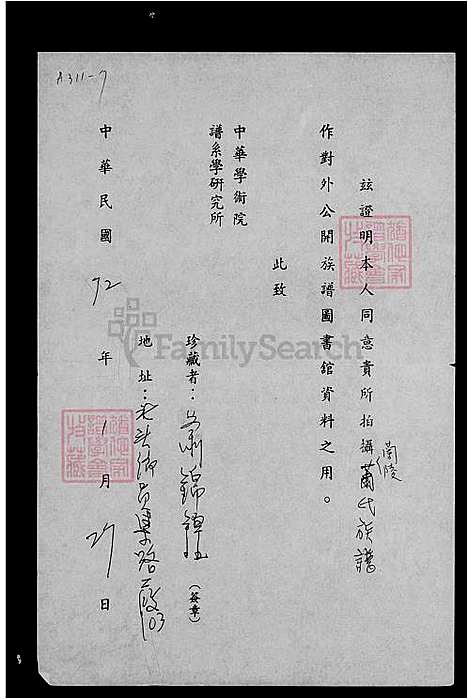 A311-7
玆證明本人同意貴所拍攝蘭陵蕭氏族譜
作對外公開族譜圖書館資料之用。
此致
中華學術院
譜系學研究所
珍藏者：蕭錦
(簽章)
地址：
中華民國72年1月21日
FamilySearch